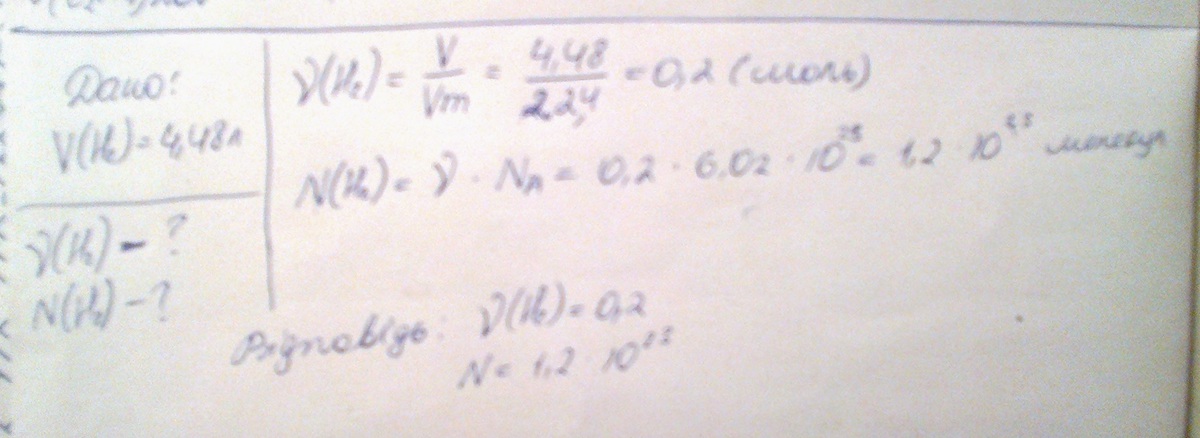 Дано:
V(H₂) = 4,48л
ν(H₂) - ?
N(H₂) - ?
ν(H₂) = V/Vm = 4,48/22,4 = 0,2 (моль)
N(H₂) = ν · Nₐ = 0,2 · 6,02 · 10²³ = 1,2 · 10²³ молекул
Відповідь: ν(H₂) = 0,2
N = 1,2 · 10²³